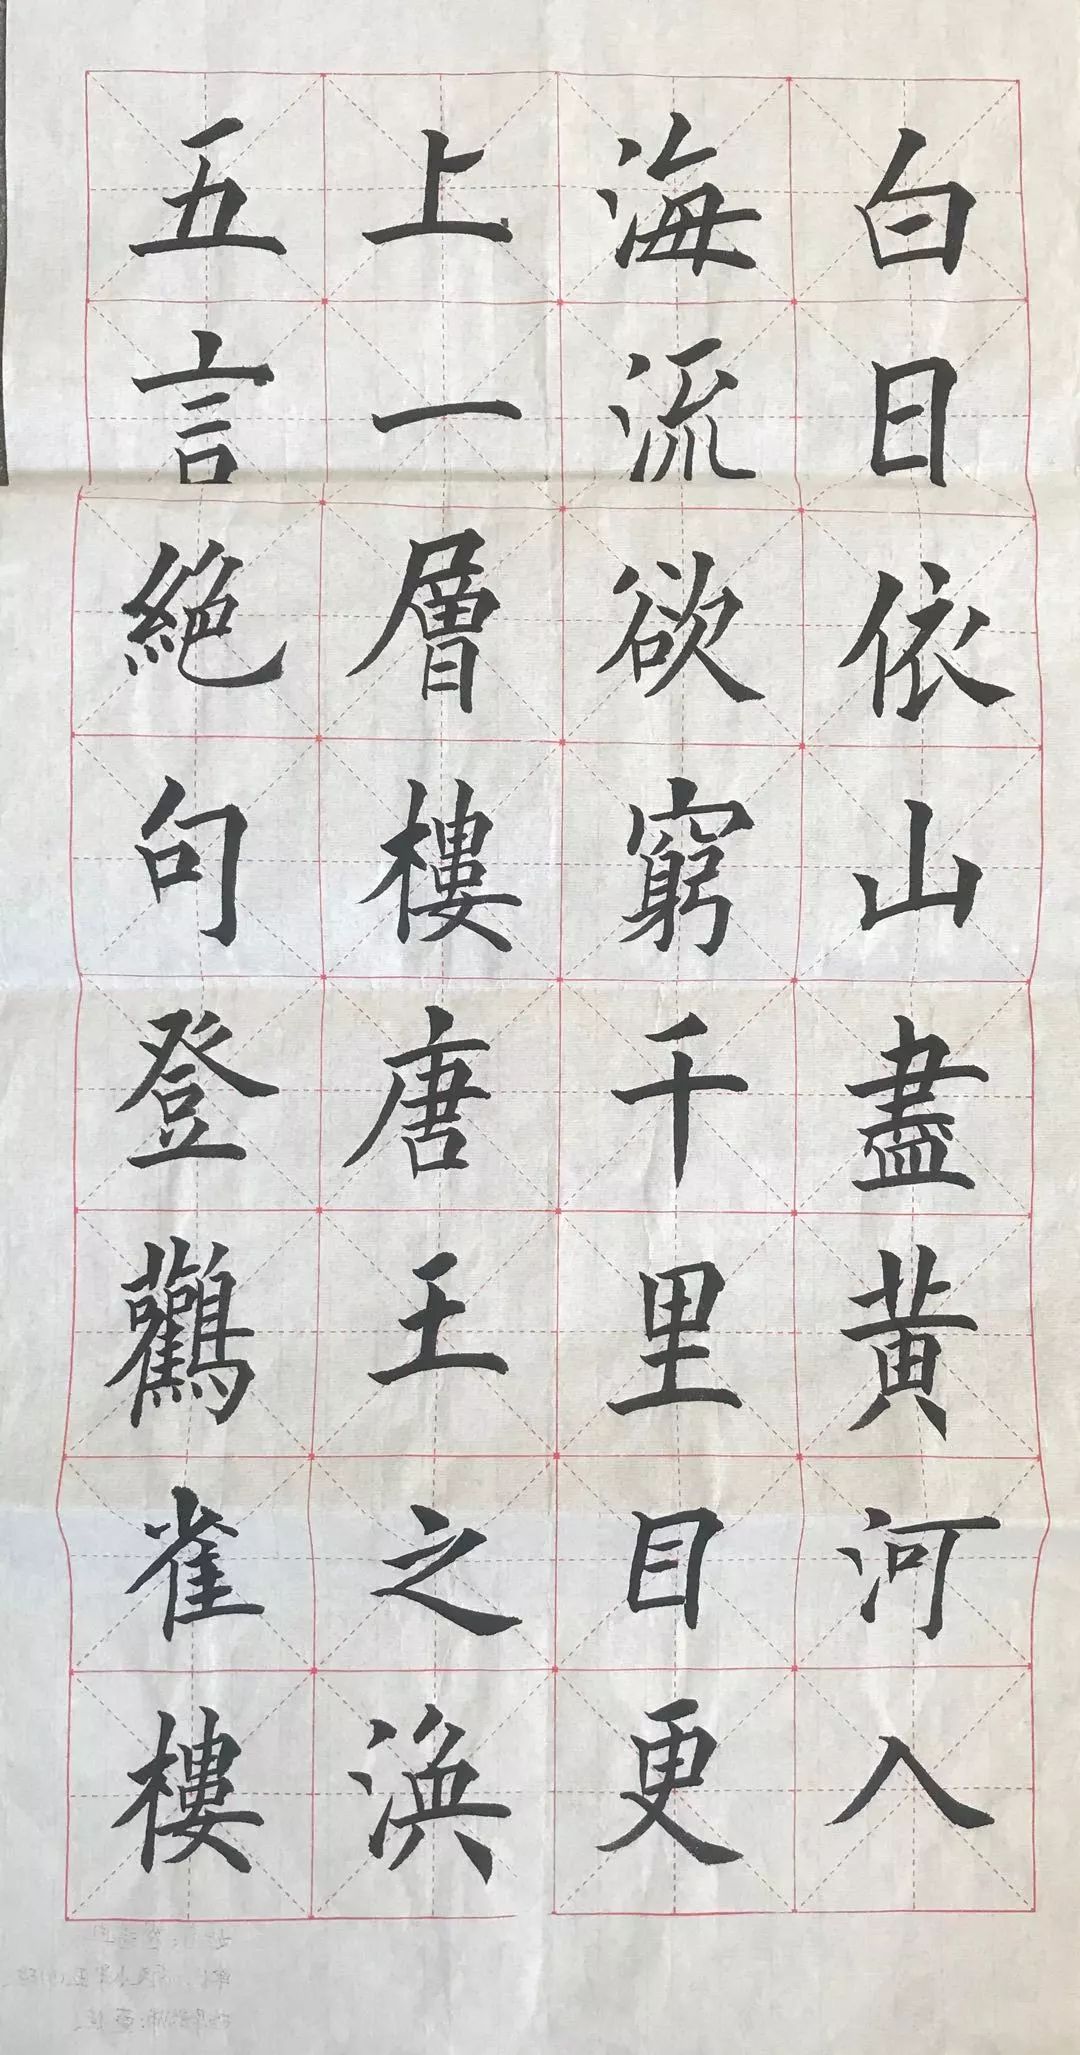 白日依山盡黃河入
海流欲窮千里目更
上一層樓唐王之渙
五言絕句登鸛雀樓